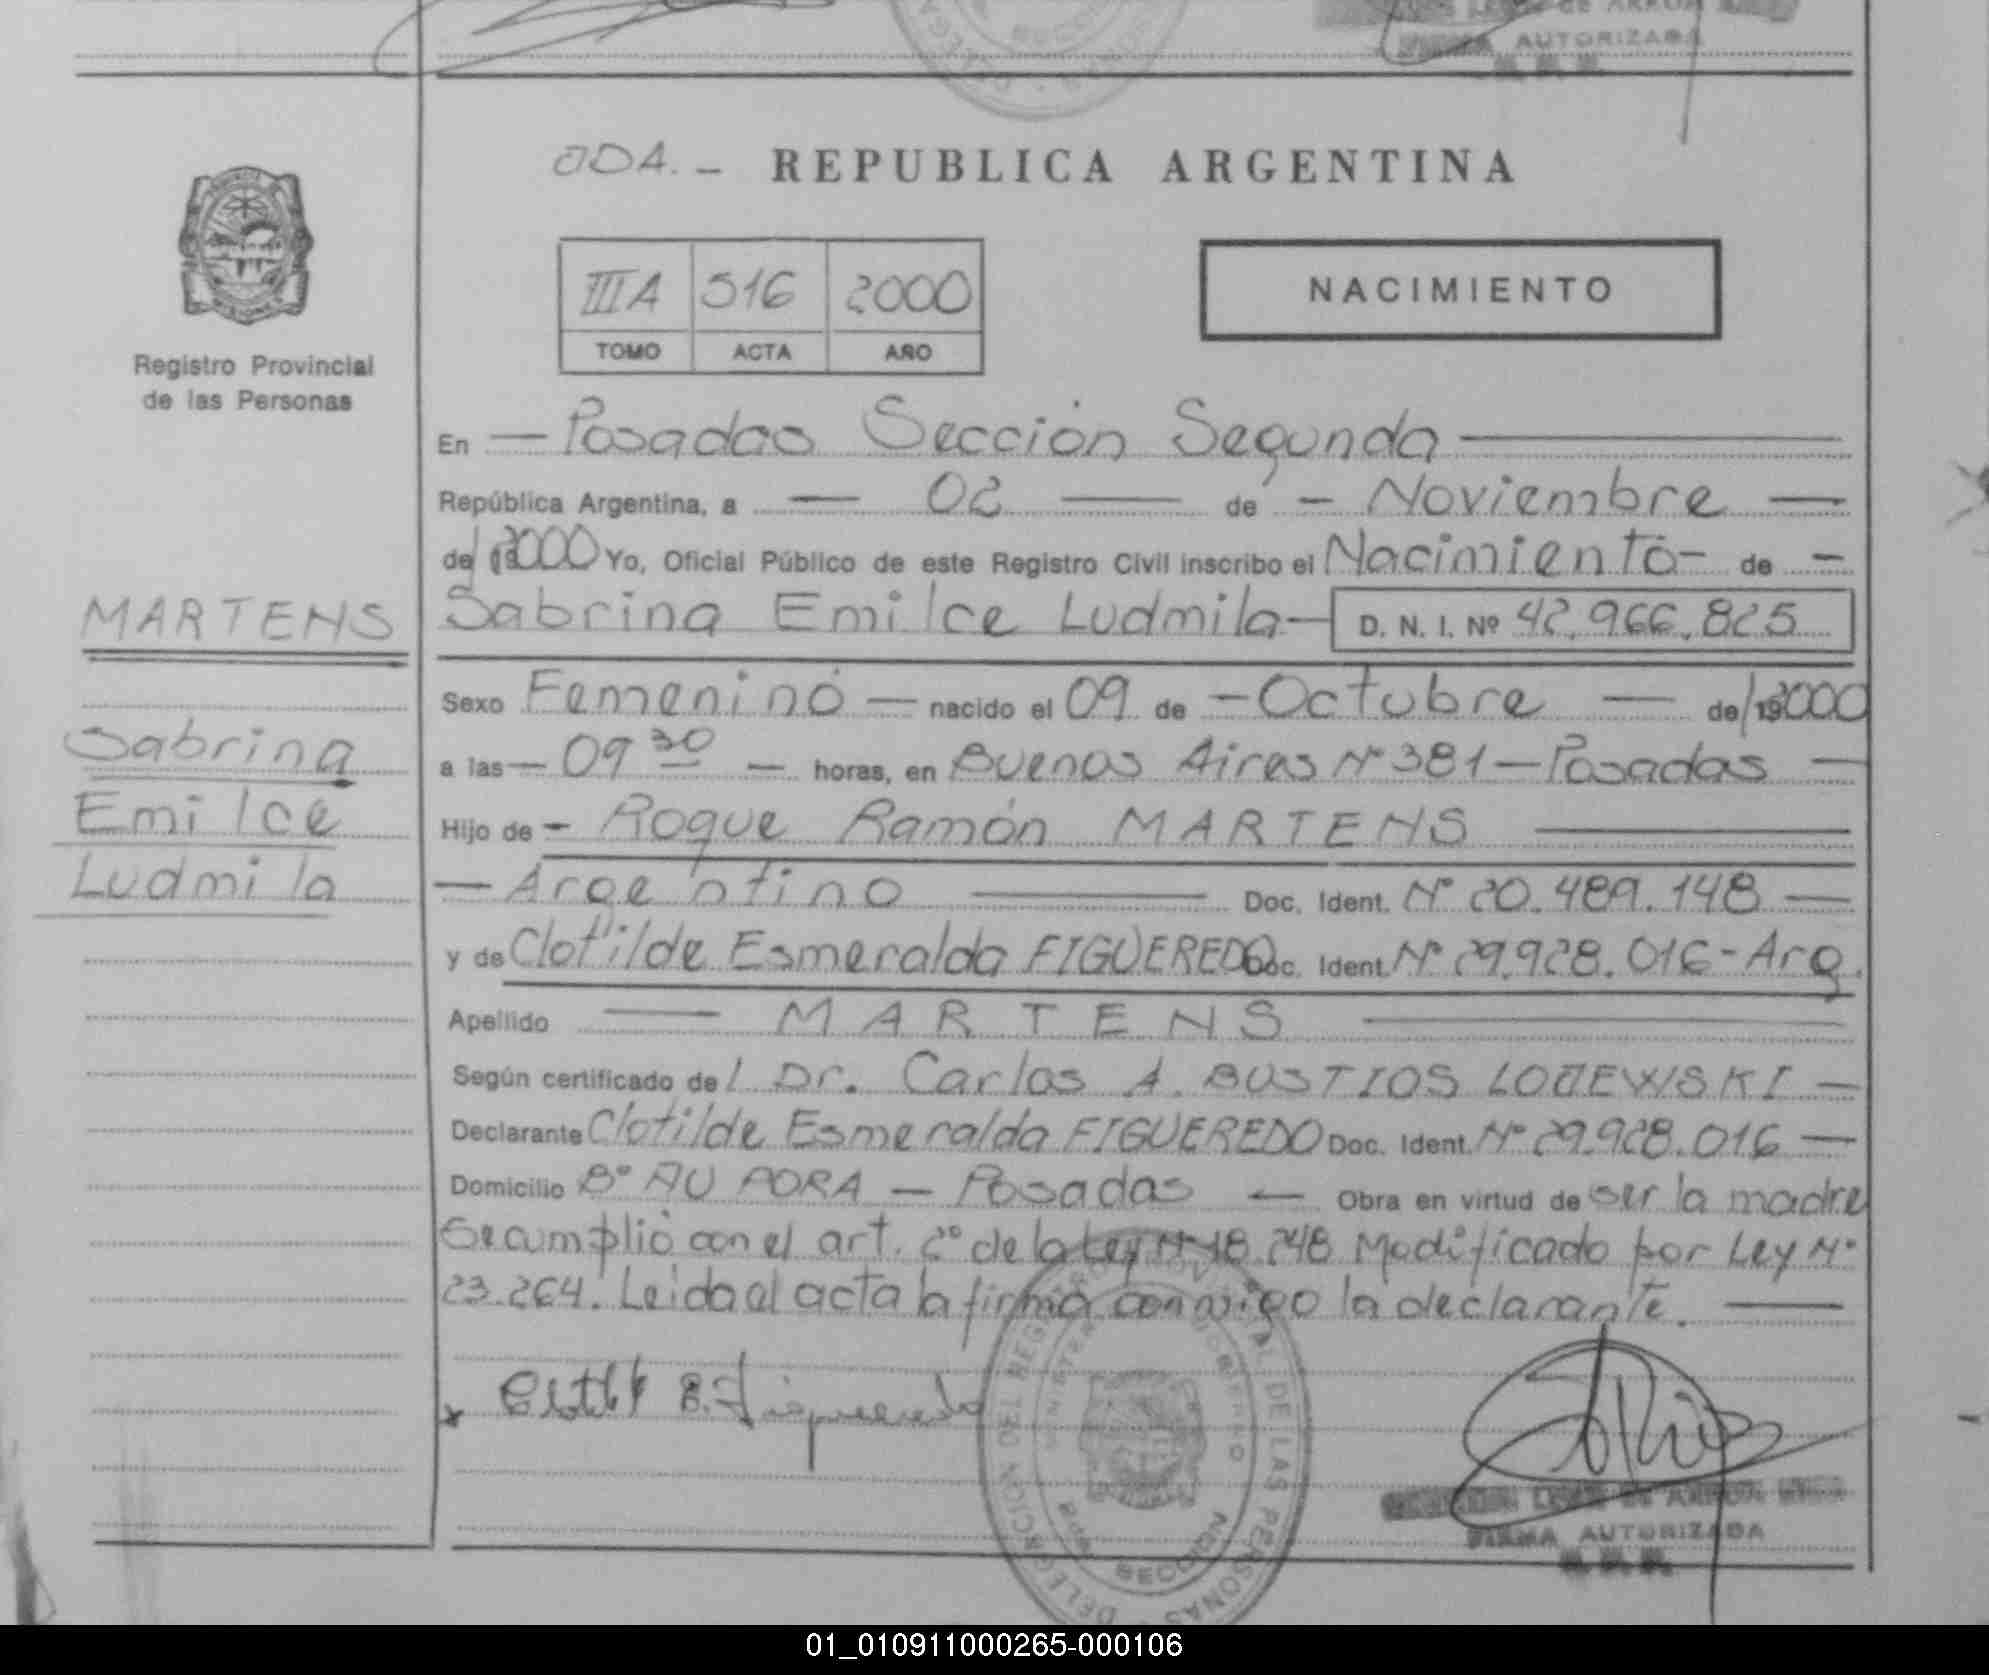 FIRMA AUTORIZADA
ODA.- REPUBLICA ARGENTINA
IIIA 516 2000
TOMO ACTA AÑO
NACIMIENTO
Registro Provincial
de las Personas
MARTENS
Sabrina
Emilce
Ludmila
En — Posadas Sección Segunda —
República Argentina, a — 02 — de - Noviembre —
de 2000 Yo, Oficial Público de este Registro Civil inscribo el Nacimiento- de -
Sabrina Emilce Ludmila— D. N. I. Nº 42.966.825
Sexo Femenino — nacido el 09 de -Octubre — de 2000
a las — 09 30 — horas, en Buenos Aires Nº 381 — Posadas —
Hijo de - Roque Ramón MARTENS —
— Argentino — Doc. Ident. Nº 20.489.148 —
y de Clotilde Esmeralda FIGUEREDO Doc. Ident. Nº 29.928.016-Arg.
Apellido — MARTENS —
Según certificado de l Dr. Carlos A. BUSTIOS —
Declarante Clotilde Esmeralda FIGUEREDO Doc. Ident. Nº 29.928.016 —
Domicilio Bº Posadas — Obra en virtud de ser la madre
Se cumplió con el art. 2º de la Ley Nº 18.248 Modificado por Ley Nº
23.264. Leida el acta la firma conmigo la declarante. —
DELEGACION DEL REGISTRO PROVINCIAL DE LAS PERSONAS
MINISTERIO GOBIERNO
FIRMA AUTORIZADA
01_010911000265-000106